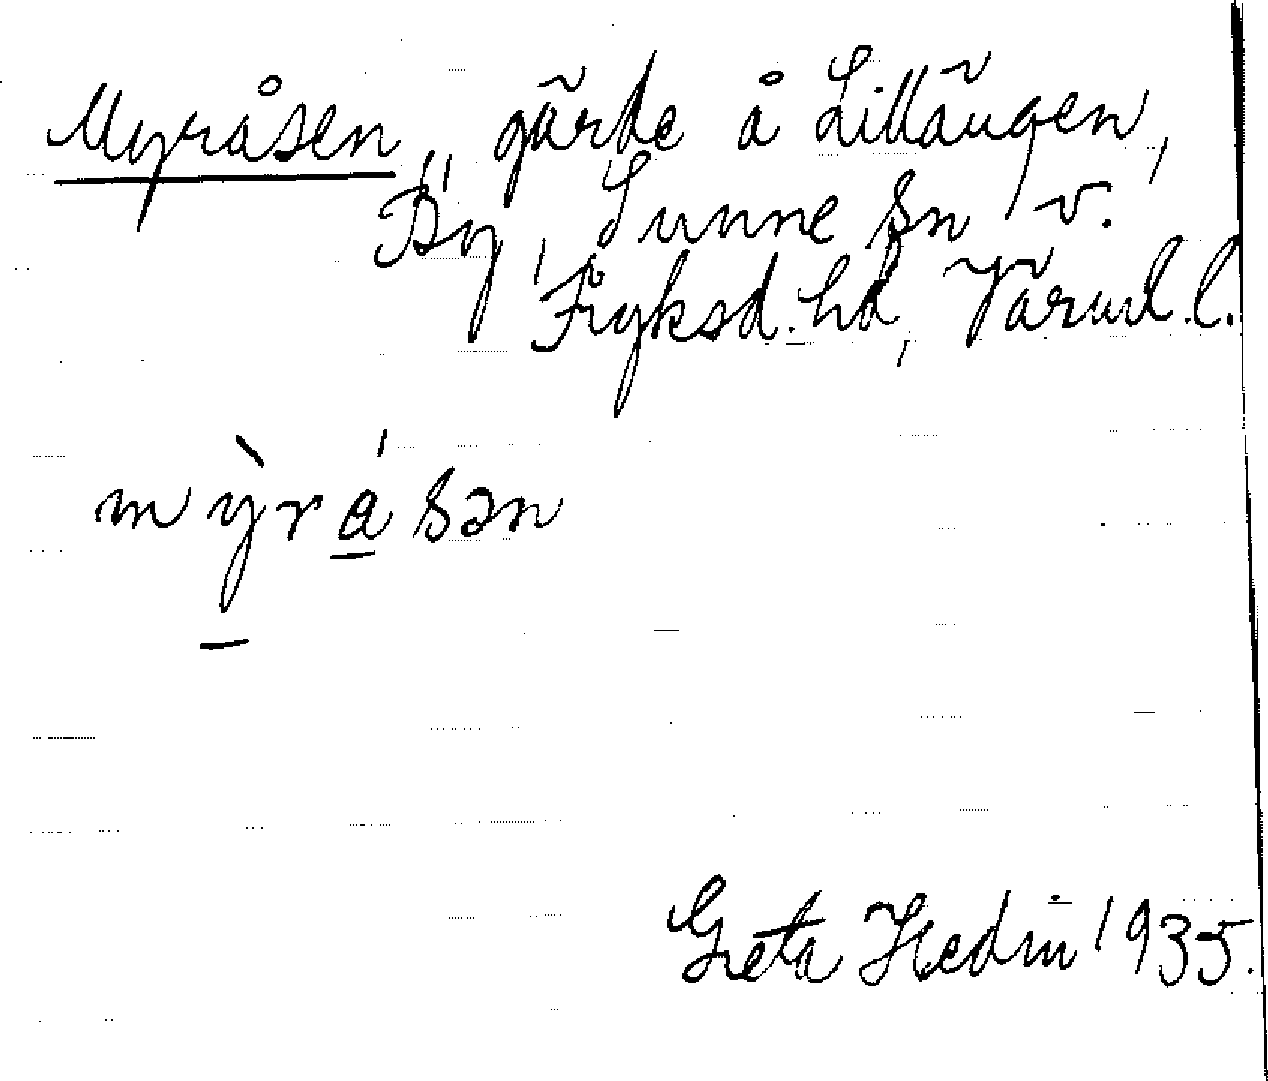 Myråsen, gärde å Lillängen,
By, Sunne sn v.
Fryksd. hd, Värml. l.
mỳrásən
Greta Hedin 1935.